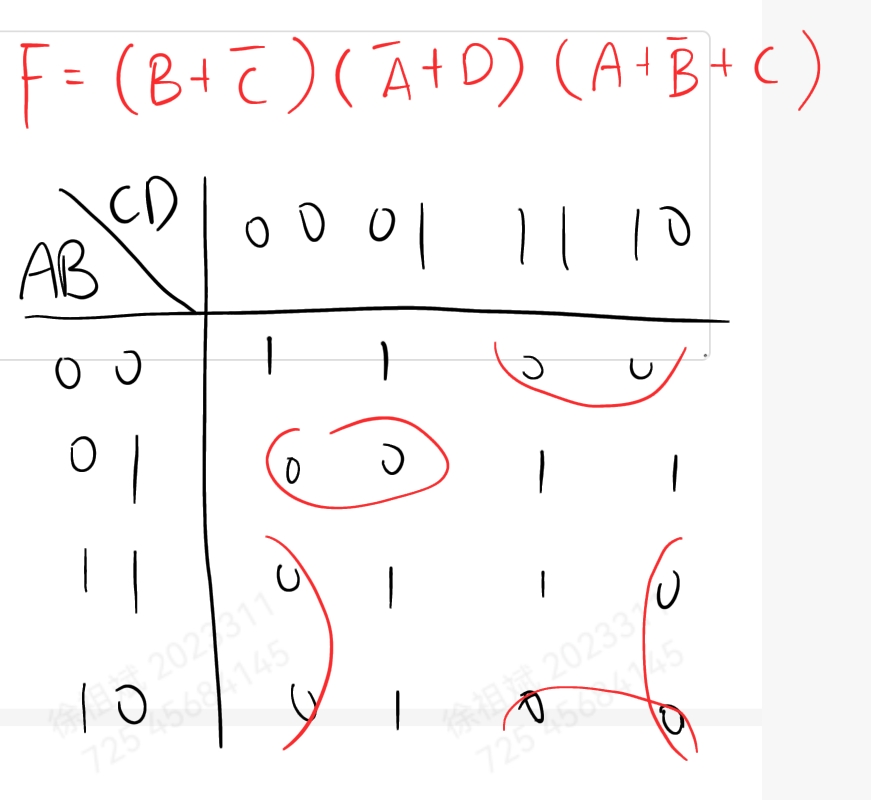 F = (B + C̅)(A̅ + D)(A + B̅ + C)
CD
AB
00 01 11 10
00 1 1 0 0
01 0 0 1 1
11 0 1 1 0
10 0 1 0 0
徐祖斌 2023311
725 45684145
徐祖斌 202331
725 45684145